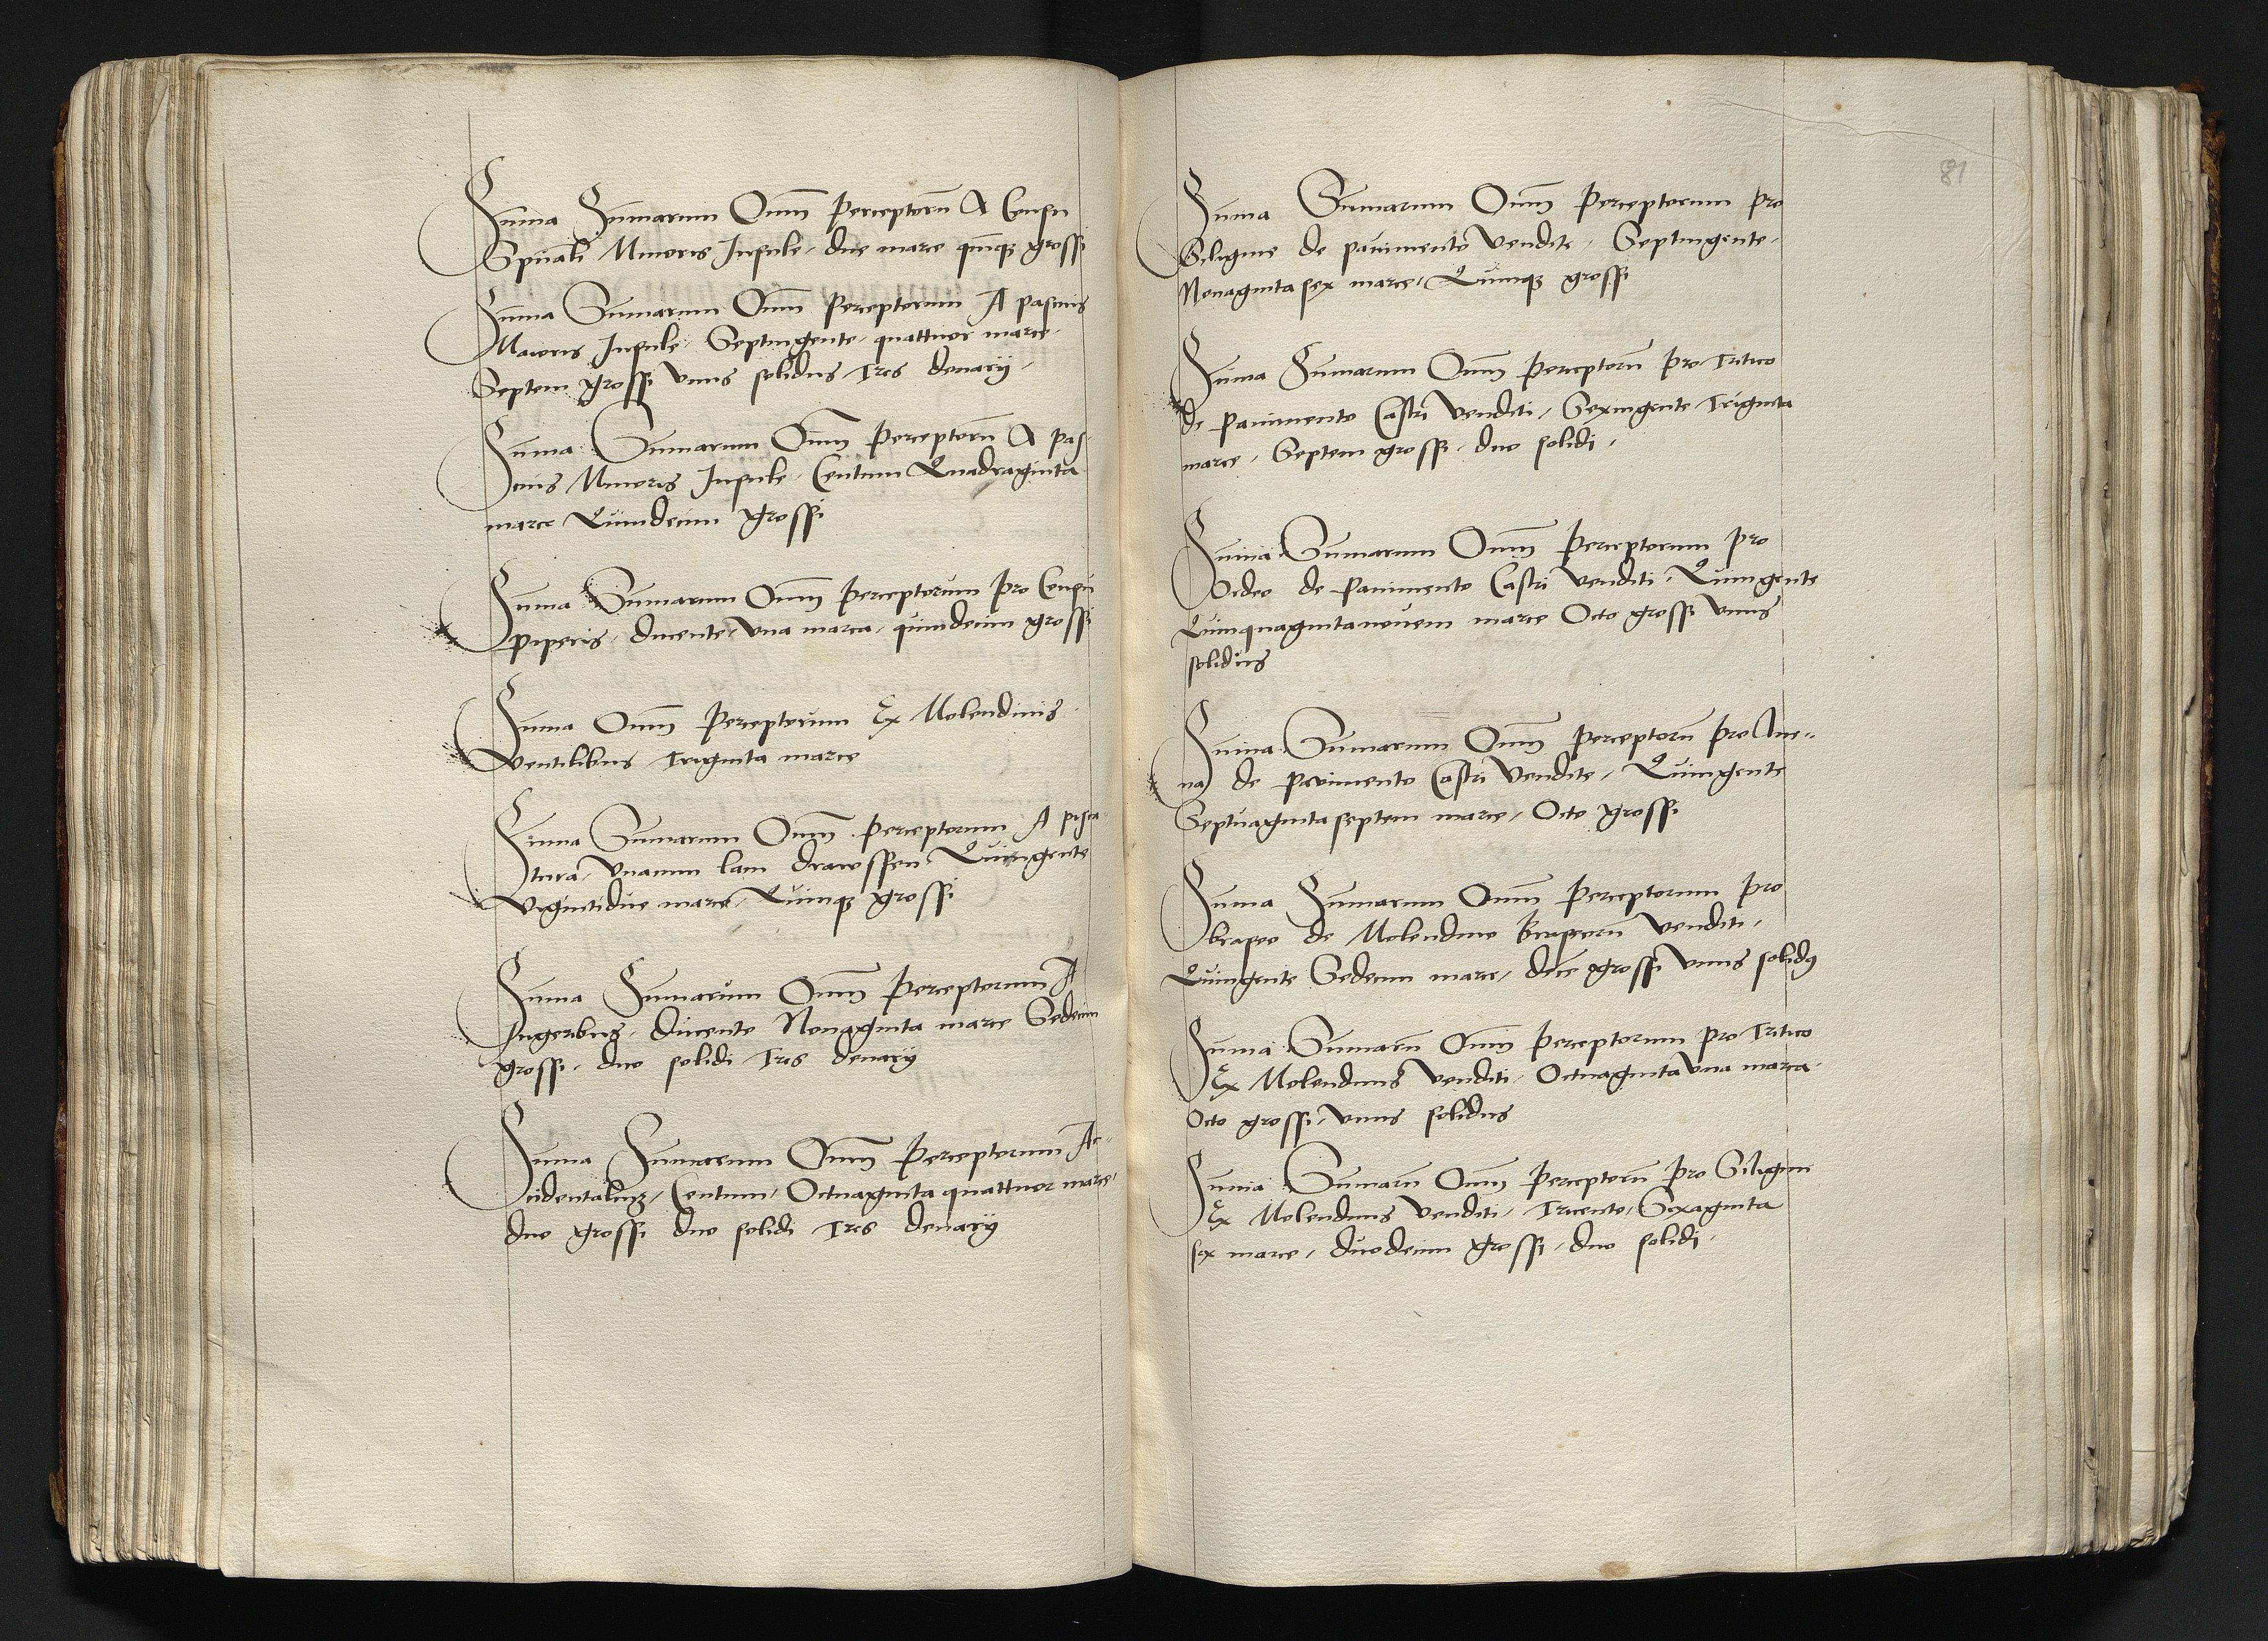 Suma Sumarum Oīm Perceptorū A Censu
Spūali Minoris Insule, due marce quīqȝ grossi
Suma Sumarum Oīm Perceptorum A pascuis
Maioris Insule, Septingente, quattuor marce,
Septem grossi vnus solidus Tres denarÿ,
Suma Sumarum Oīm Perceptorū A pas-
cuis Minoris Insule, Centum Quadraginta
marce Quindecim grossi
Suma Sumarum Oīm Perceptorum Pro Censu
piperis, ducente, vna marca, quindecim grossi
Suma Oīm Perceptorum Ex Molendinis
Ventilibus Triginta marce
Suma Sumarum Oīm Perceptorum A pisca-
tura, vnacum lam Quingente
Vigintidue marce, Quinqȝ grossi
Suma Sumarum Oīm Perceptorum A
Iugeribus, ducente Nonaginta marce Sedecim
grossi, duo solidi Tres denarÿ
Suma Sumarum Oīm Perceptorum Ac-
cidentaliuȝ, Centum, Octuaginta quattuor marce,
duo grossi duo solidi Tres denarÿ
81
Suma Sumarum Oīm Perceptorum pro
Siligine de pauimento Vendite, Septingente,
Nonagintasex marce, Quinqȝ grossi
Suma Sumarum Oīm Perceptorū Pro Tritico
de Pauimento Castri Venditi, Sexingente Triginta
marce, Septem grossi, duo solidi,
Suma Sumarum Oīm Perceptorum pro
Ordeo de Pauimento Castri Venditi, Quingente
Quinquagintanouem marce Octo grossi vnus
solidus
Suma Sumarum Oīm Perceptorū Pro Aue-
na de Pavimento Castri Vendite, Quingente
Septuagintaseptem marce, Octo grossi
Suma Sumarum Oīm Perceptorum pro
braseo de Molendino Braseorū Venditi,
Quingente Sedecim marce, duo grossi vnus solidꝰ
Suma Sumarū Oīm Perceptorum Pro Tritico
Ex Molendinis venditi, Octuaginta vna marca,
Octo grossi, vnus solidus
Suma Sumarū Oīm Perceptorū Pro Siligini
Ex Molendinis Venditi, Tricente, Sexaginta
sex marce, duodecim grossi, duo solidi,